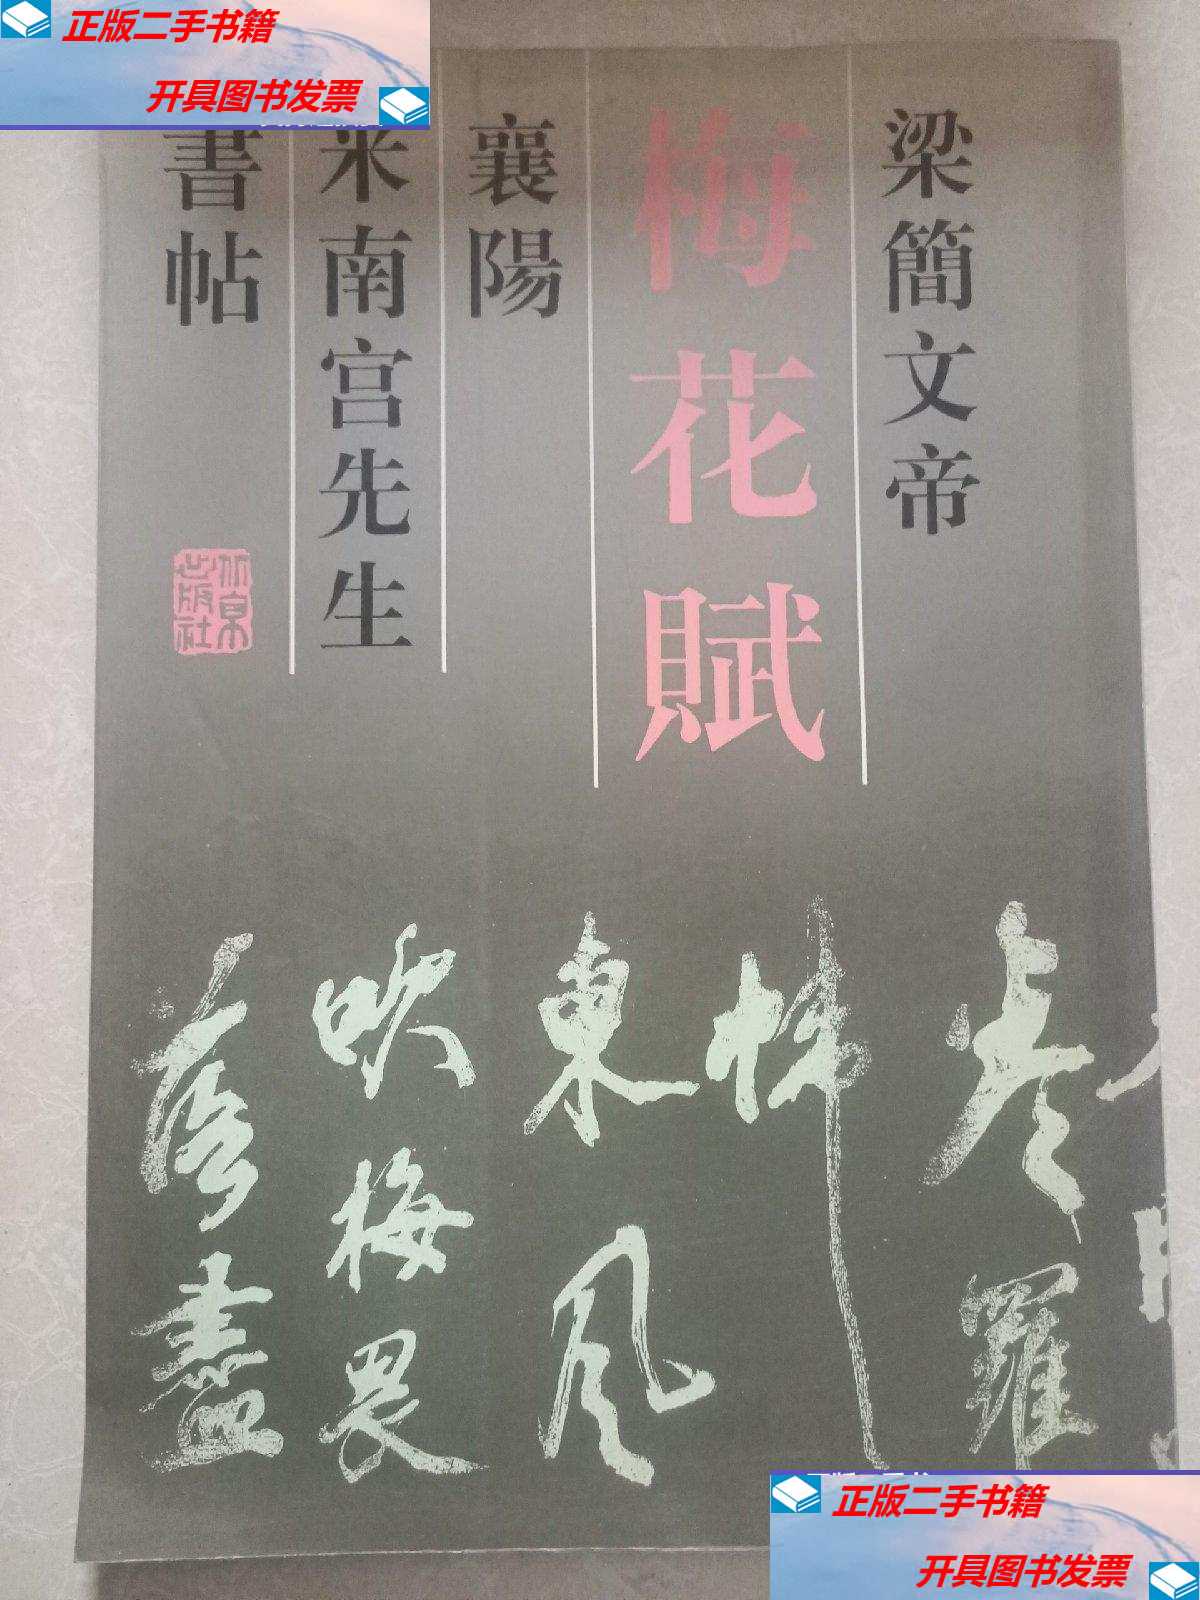 正版二手书籍
开具图书发票
梁簡文帝
梅花賦
襄陽
米南宮先生
書帖
北京出版社
春羅
東風
吹梅畏
落盡
正版二手书籍
开具图书发票